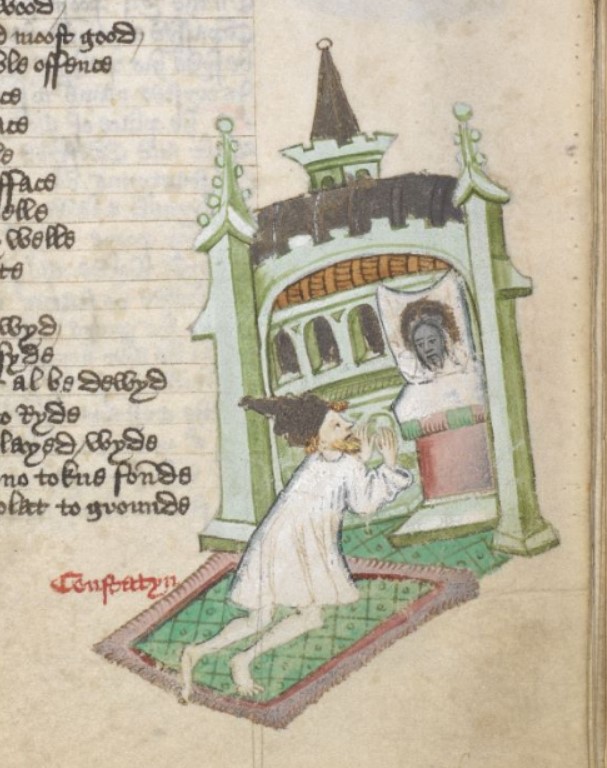 wood
d moost good
ble offence
ce
ace
le
fface
elle
welle
te
wyd
syde
al be dewyd
ryde
layed wyde
no tokne fonde
to grounde
Constatyn